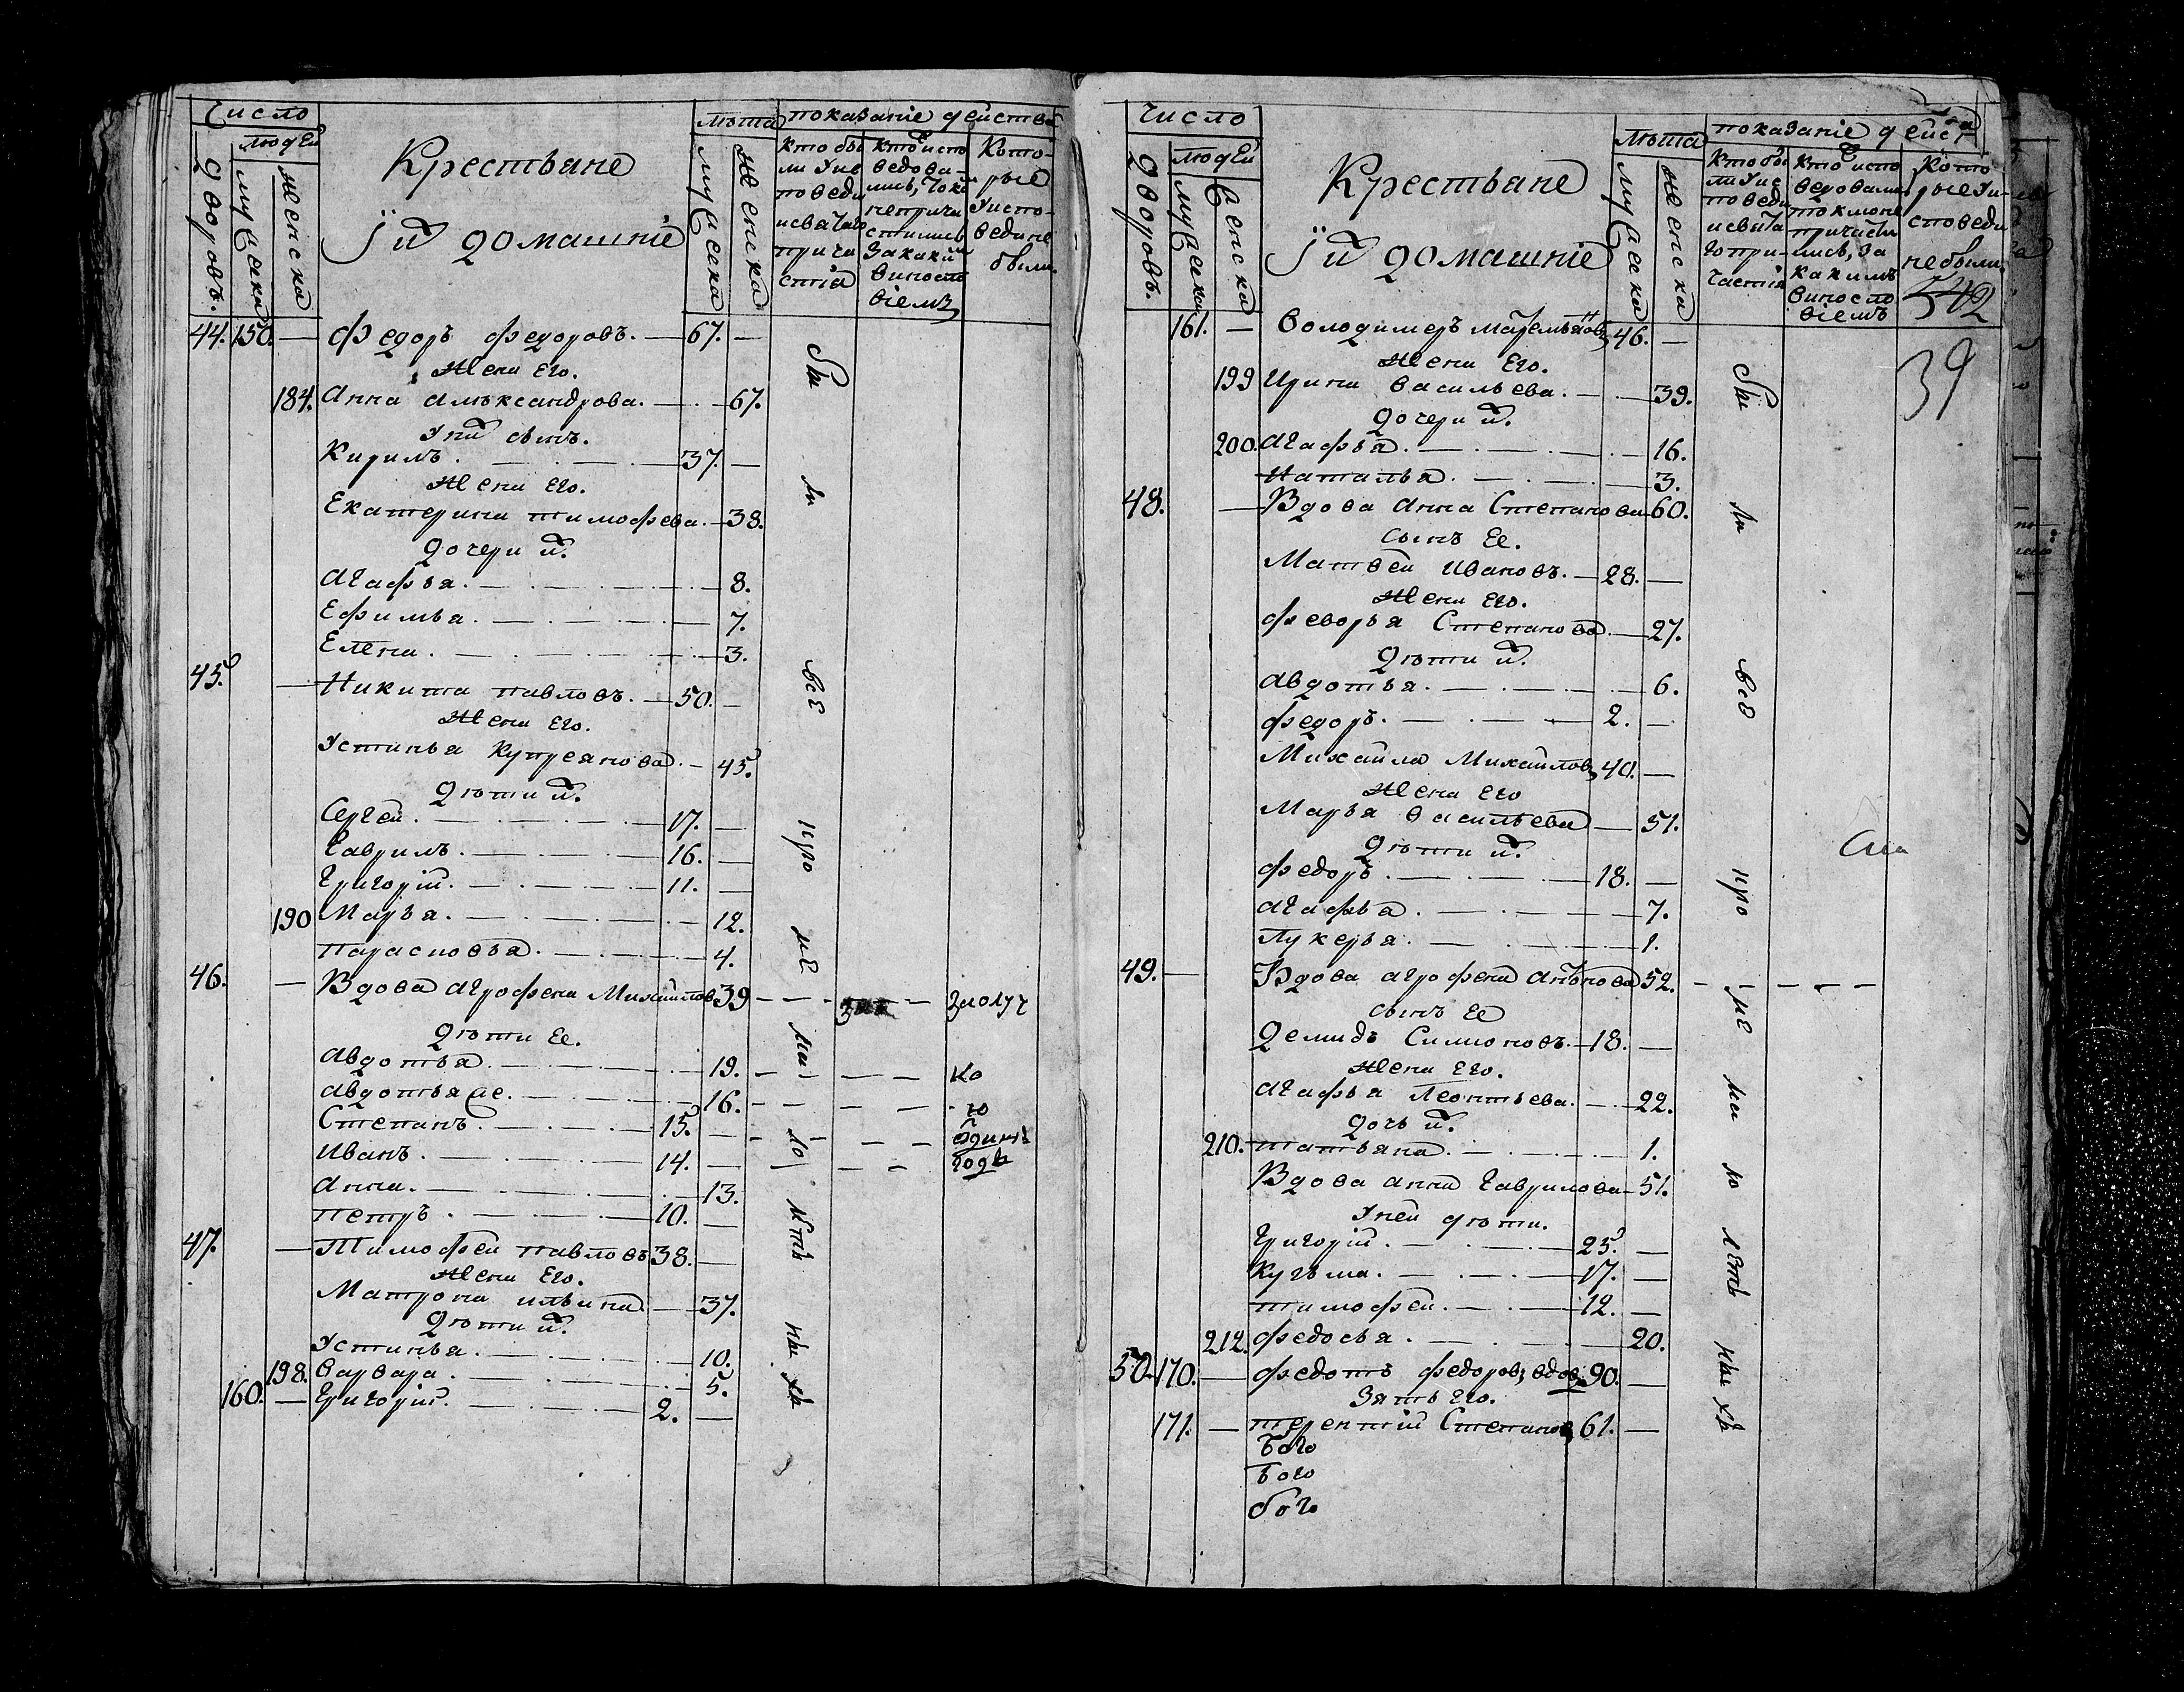 Число
людей
дворовъ.
мужеска
женска
Крестьяне
Ї ихъ домашніе
лѣта
мужеска
женска
показаніе действа
кто бы
ли у ис
поведи
и святаго
прича
стія
кто испо
ведова-
лись, токм
непричи
стились
за каким
винослов
віемъ
Кото-
рые
у испо-
веди не
были.
44. 150. — Федоръ Федоровъ. — 67. —
Жена Его.
184. Анна Александрова. — 67.
У них сынъ.
Кирилъ. — 37. —
Жена Его.
Екатерина тимофеева. — 38.
Дочери их.
Агафья. — 8.
Ефимья. — 7.
Елена. — 3.
45. — Никита павловъ. — 50. —
Жена Его.
Устинья Купреянова. — 45.
Дѣти их.
Сергей. — 17. —
Гаврилъ. — 16. —
Григорій. — 11. —
190 Марья. — 12.
парасковья. — 4.
46. — Вдова Агрофена Михайлов 39 — — — — —
Дѣти Ее.
Авдотья — 19. — — — —
Авдотья же. — 16. — — — —
Степанъ. — 15. — — — — одинъ
Иванъ. — 14. — — — годъ
Анна. — 13.
петръ. — 10. —
47. — Тимофей павловъ 38. —
Жена Его.
Матрона ильина. — 37.
Дѣти их.
Устинья. — 10.
198. Варвара. — 5.
160. — Григорій. — 2. —
Число
людей
дворовъ.
мужеска
женска
Крестьяне
Ї ихъ домашніе
лѣта
мужеска
женска
показаніе действ
кто бы
ли у ис
поведи
и свята
го при-
частія
кто испо
ведовались
токмо не
причасти
лись, за
какимъ
винносло
віемъ
Кото
рые у и-
споведи
не были.
542
39
161. — Володимеръ Марѣмьяновъ 46. —
Жена Его.
199 Ирина Васильева. — 39.
Дочери их.
200. Агафья. — 16.
Наталья. — 3.
48. — Вдова Анна Степанова 60.
сынъ Ее.
Матвей Ивановъ. — 28. —
Жена Его.
Феворья Степанова. — 27.
Дѣти их.
Авдотья. — 6.
Федоръ. — 2. —
Михайла Михайловъ 40. —
Жена Его
Марья Васильева — 51.
Дѣти их.
Федоръ. — 18. —
Агафья. — 7.
Лукерья. — 1.
49. — Вдова Агрофена Антонова 52. — — — —
сынъ Ее
Демидъ Симоновъ. — 18. —
Жена Его.
Агафья Леонтьева. — 22.
дочь их.
210. татьяна. — 1.
Вдова Анна Гаврилова — 51.
У ней дѣти.
Григорій. — 25. —
Кузьма. — 17. —
тимофей. — 12. —
212. Федосья. — 20.
50. 170. — Федотъ Федоровъ, вдов. 90. —
Зять Его.
171. — терентій Степановъ 61. —
Бого
Бого
бого